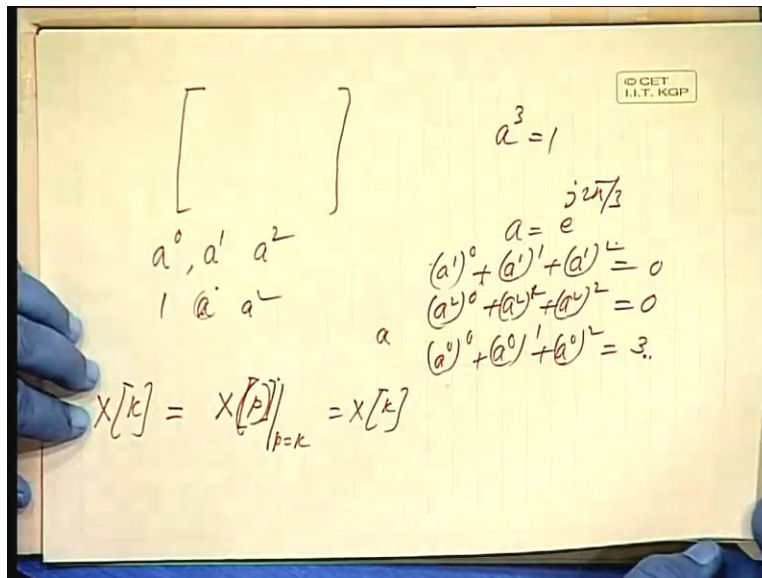 © CET
I.I.T. KGP
a³ = 1
a = e^{j2π/3}
a⁰, a¹ a²
1 a a²
(a¹)⁰ + (a¹)¹ + (a¹)² = 0
(a²)⁰ + (a²)¹ + (a²)² = 0
a
(a⁰)⁰ + (a⁰)¹ + (a⁰)² = 3..
X[k] = X[p]|_{p=k} = X[k]